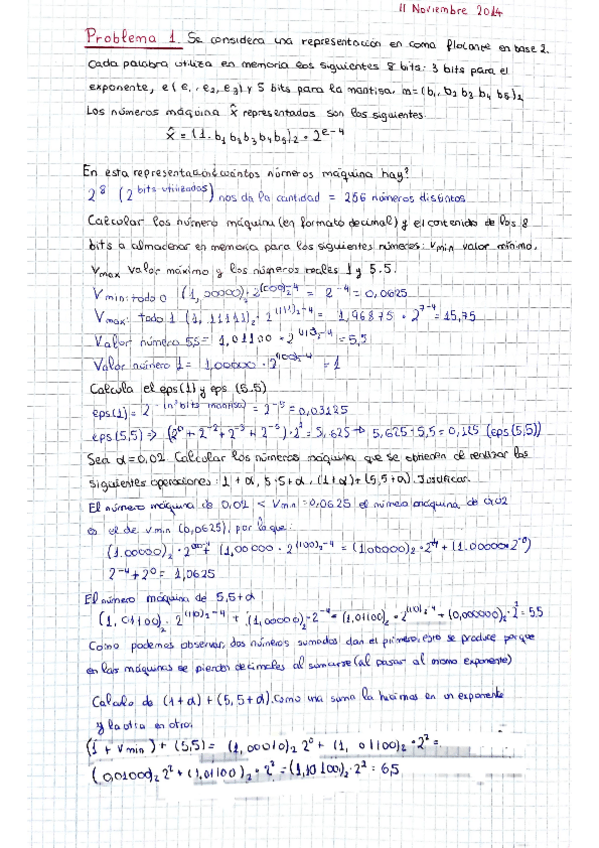 11 Noviembre 2014
Problema 1. Se considera una representación en coma flotante en base 2.
Cada palabra utiliza en memoria los siguientes 8 bits: 3 bits para el
exponente, e(e₁, e₂, e₃) y 5 bits para la mantisa, m=(b₁, b₂ b₃ b₄ b₅)₂
Los números máquina x̂ representados son los siguientes.
x̂ = (1.b₁b₂b₃b₄b₅)₂ · 2^(e-4)
En esta representación ¿cuántos números máquina hay?
2⁸ (2^(bits utilizados)) nos da la cantidad = 256 números distintos
Calcular los número máquina (en formato decimal) y el contenido de los 8
bits a almacenar en memoria para los siguientes números: Vmin valor mínimo,
Vmax valor máximo y los números reales 1 y 5.5.
Vmin: todo 0 (1,00000)₂ · 2^((000)₂-4) = 2^-4 = 0,0625
Vmax: todo 1 (1,11111)₂ · 2^((111)₂-4) = 1,96875 · 2^(7-4) = 15,75
Valor número 5,5 = 1,01100 · 2^((110)₂-4) = 5,5
Valor número 1 = 1,00000 · 2^((100)₂-4) = 1
Calcula el eps(1) y eps (5.5)
eps(1) = 2^-(nº bits mantisa) = 2^-5 = 0,03125
eps(5,5) => (2⁰ + 2^-2 + 2^-3 + 2^-5) · 2² = 5,625 → 5,625 - 5,5 = 0,125 (eps(5,5))
Sea α=0,02. Calcular los números máquina que se obtienen de realizar las
siguientes operaciones: 1+α, 5.5+α, (1+α)+(5,5+α). Justificar.
El número máquina de 0,02 < Vmin = 0,0625 el número máquina de 0,02
es el de vmin (0,0625), por lo que:
(1.00000)₂ · 2^((000)₂-4) + (1,00000 · 2^((100)₂-4) = (1,00000)₂ · 2^-4 + (1.00000 · 2^0)
2^-4 + 2⁰ = 1,0625
El número máquina de 5,5+α
(1,01100)₂ · 2^((110)₂-4) + (1,00000)₂ · 2^-4 = (1,01100)₂ · 2^((110)₂-4) + (0,000000)₂ · 2² = 5,5
Como podemos observar, dos números sumados dan el primero, esto se produce porque
en las máquinas se pierden decimales al sumarse (al pasar al mismo exponente)
Calculo de (1+α) + (5,5+α). Como una suma la hacemos en un exponente
y la otra en otro:
(1 + Vmin) + (5,5) = (1,00010)₂ 2⁰ + (1,01100)₂ · 2² =
(0,01000)₂ 2² + (1,01100)₂ · 2² = (1,10100)₂ · 2² = 6,5